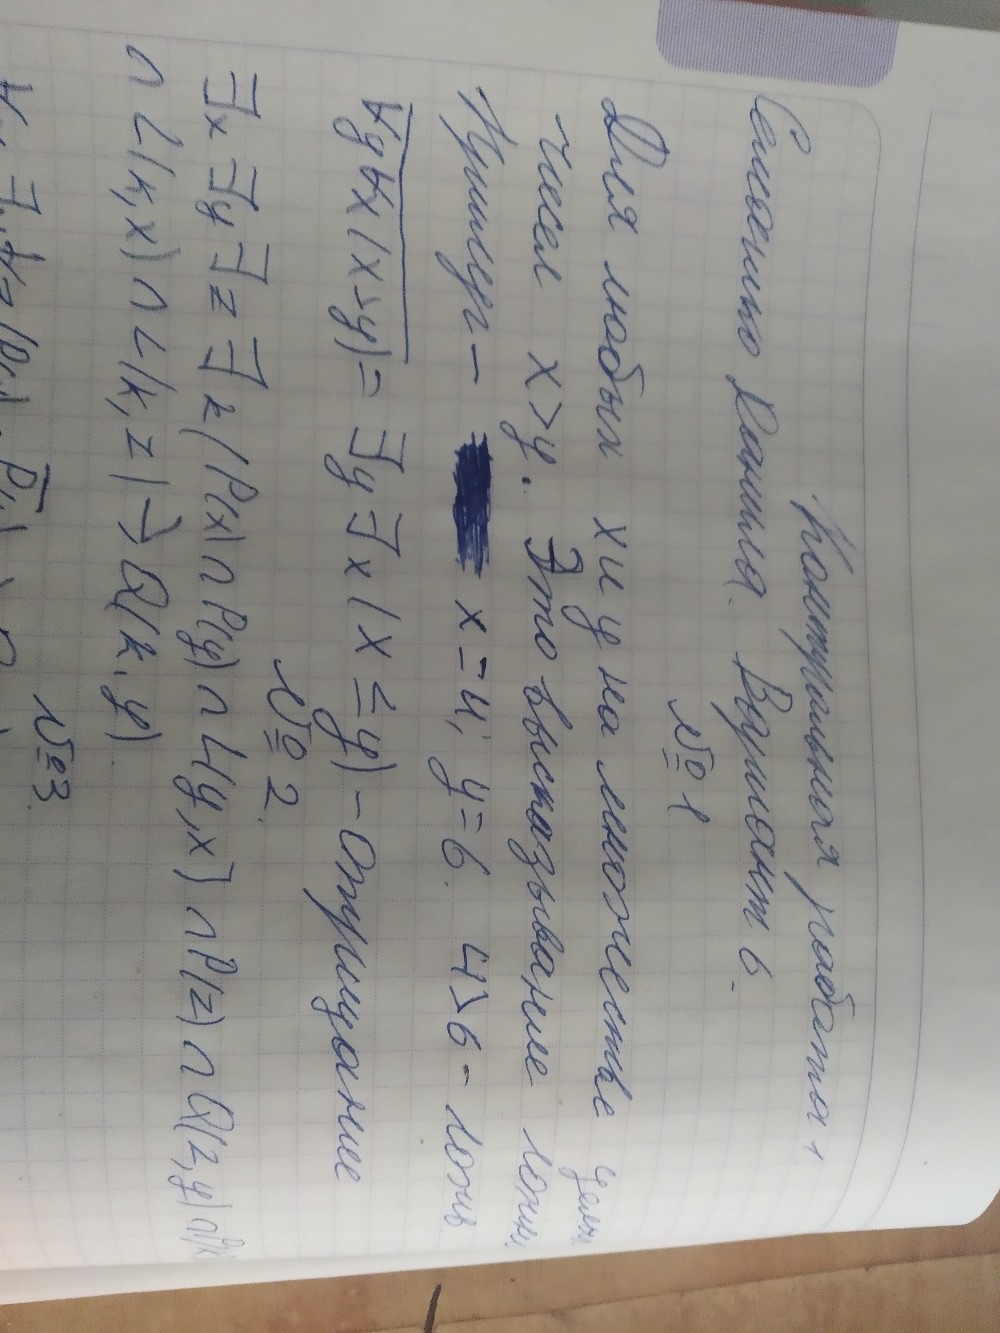 Контрольная работа 1
Данила. Вариант 6.
№ 1
Для любых x и y на множестве целых
чисел x>y. Это высказывание ложн.
Пример - x=4; y=6. 4>6 - ложь
∀y∀x(x>y) = ∃y∃x(x≤y) - Отрицание
№ 2.
∃x∃y∃z∃k(P(x)∩P(y)∩L(y,x)∩P(z)∩Q(z,y)∩P(k
∩L(k,x)∩L(k,z)→Q(k,y)
№3.